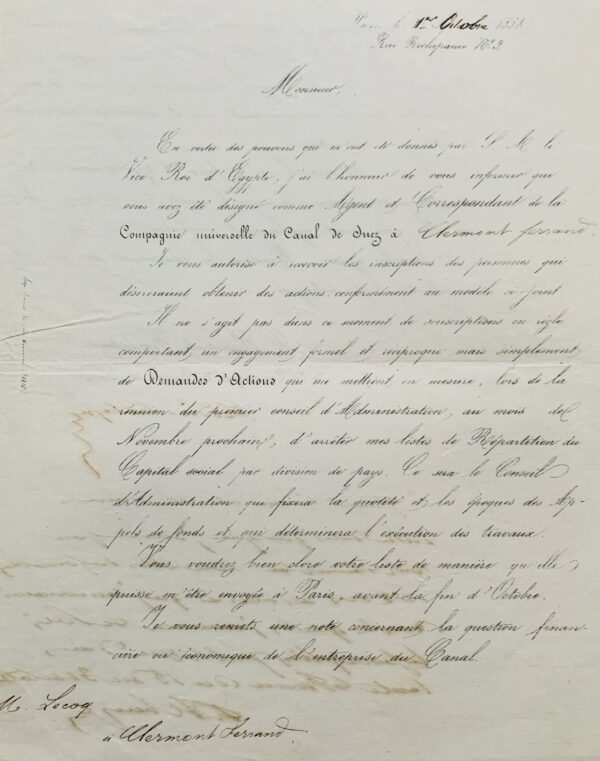 Paris, le 1er Octobre 1858
Rue Richepance No 9.
Monsieur,
En vertu des pouvoirs qui m'ont été donnés par S. M. le
Vice-Roi d'Egypte, j'ai l'honneur de vous informer que
vous avez été désigné comme Agent et Correspondant de la
Compagnie universelle du Canal de Suez à Clermont ferrand.
Je vous autorise à recevoir les inscriptions des personnes qui
désireraient obtenir des actions conformément au modèle ci-joint
Il ne s'agit pas dans ce moment de souscriptions en règle
comportant un engagement formel et réciproque mais simplement
de Demandes d'Actions qui me mettront en mesure, lors de la
réunion du premier conseil d'Administration, au mois de
Novembre prochain, d'arrêter mes listes de Répartition du
Capital social par division de pays. Ce sera le Conseil
d'Administration qui fixera la quotité et les époques des Ap-
pels de fonds et qui déterminera l'exécution des travaux.
Vous voudrez bien clore votre liste de manière qu'elle
puisse m'être envoyée à Paris, avant la fin d'Octobre.
Je vous remets une note concernant la question finan-
cière ou économique de l'entreprise du Canal.
M. Lecoq
à Clermont Ferrand.